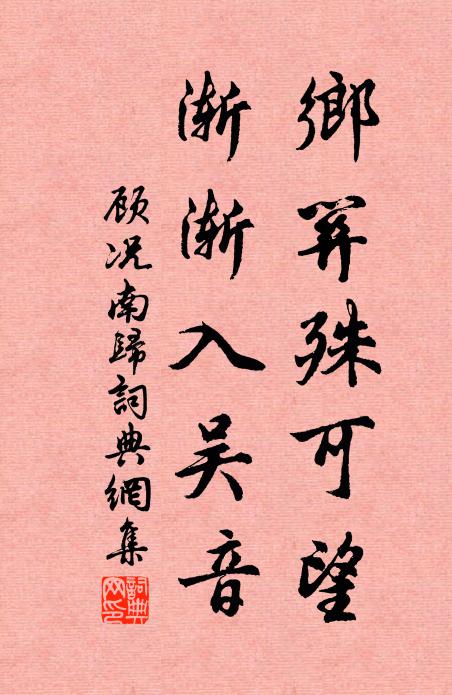 鄉關殊可望
漸漸入吴音
顾况南歸詞典網集
詞典网印